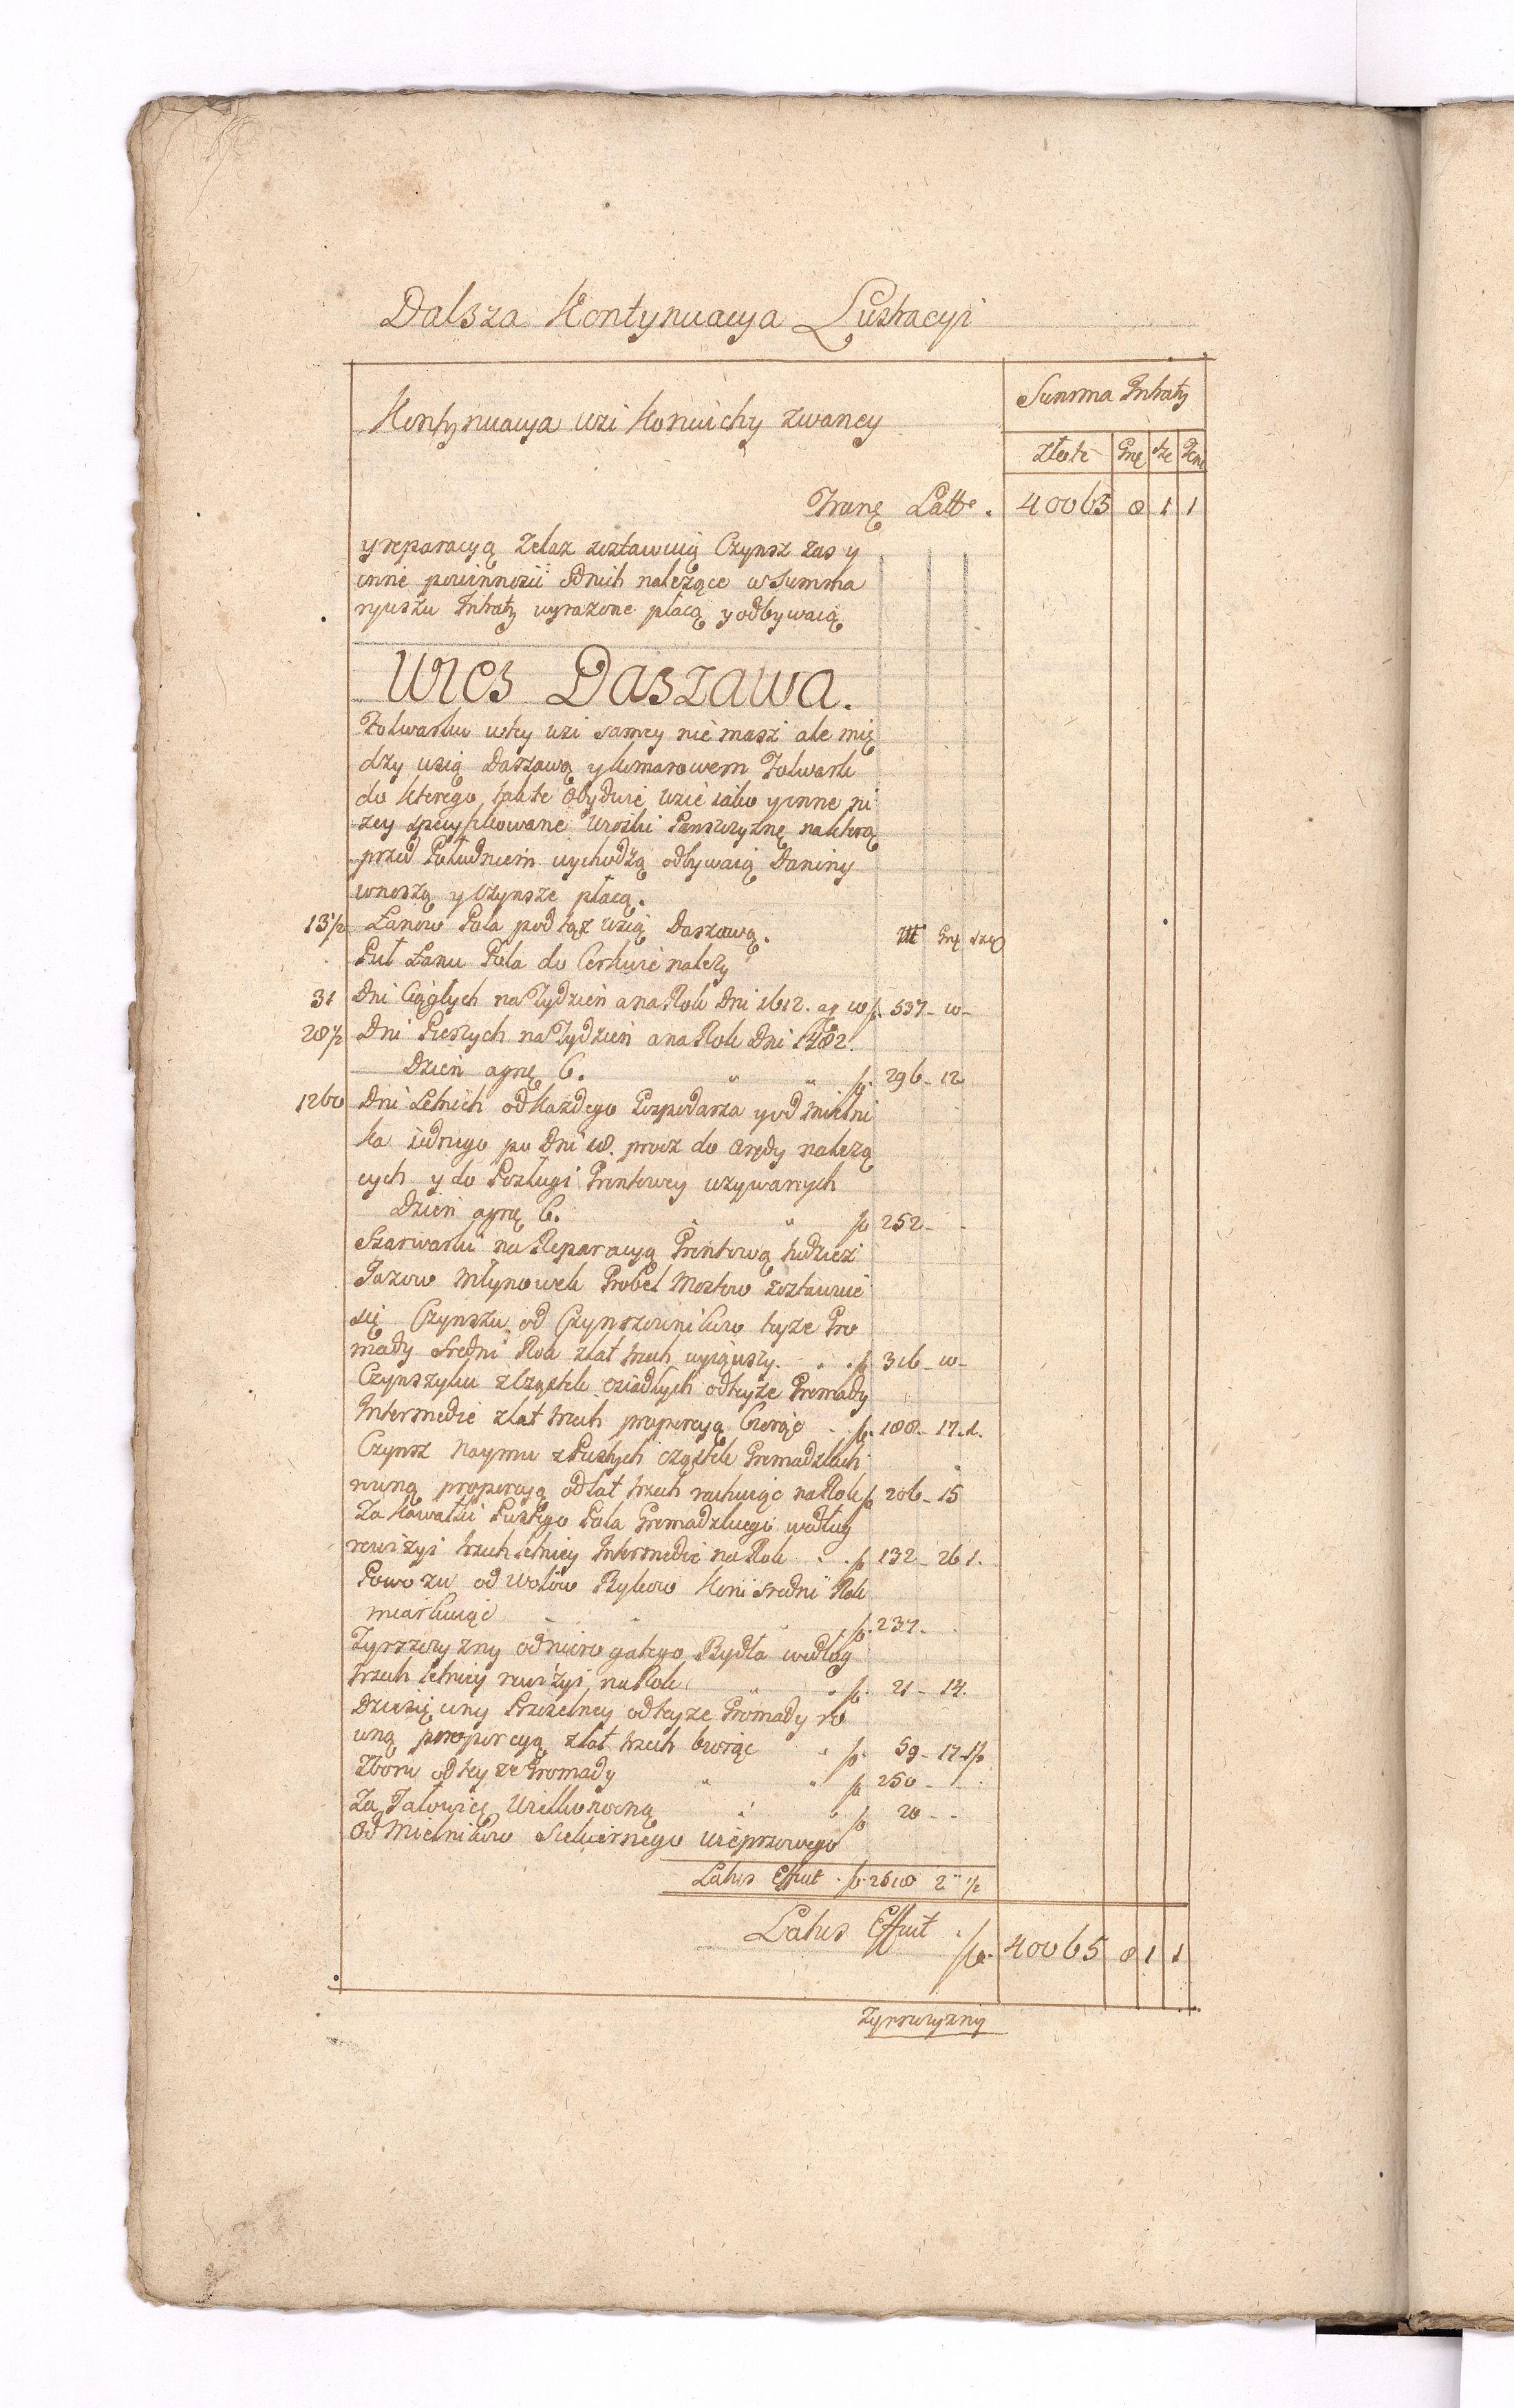 Dalsza Kontynuacya Lustracyi
Kontynuacya wsi Koniuchy zwaney
Summa Intraty
Złote Grq Sze Pene
Tranę Latte . 40065 8 1 1
y reparacyą Zelaz zostawuią Czynsz zas y
inne powinnosci Onich nalezące w Summa
ryuszu Intraty wyrazone płacą y odbywaią
Wies Daszawa.
Folwarku w tey wsi samey nie masz ale mię
dzy wsią Daszawą y Komarowem Folwark
do ktorego także Obydwie wsie iako y inne ni
zey specyfikowane Wioski Panszczyznę na ktorą
przed Południem wychodzą odbywaią Daniny
wnoszą y Czynsze płacą.
13½ Łanow Pola pod tąż wsią Daszawą. Złt Grę szęl
Puł Łanu Pola do Cerkwie nalezy
31 Dni Ciągłych na Tydzień a na Rok Dni 1612. ag 10 fl. 537 - 10 -
28½ Dni Pieszych na Tydzien a na Rok Dni 1482.
Dzień a grę 6. " " fl. 296 - 12
1260 Dni Letnich od kazdego Gospodarza y od Mielni
ka iednego po Dni 18. procz do Arędy nalezą
cych y do Posługi Gruntowey uzywanych
Dzień a grę 6. " " fl 252 - -
Szarwarku na Reparacyą Gruntową tudziesz
Jazow Młynowek Grobel Mostow zostawuie
się Czynszu od Czynszownikow teyze Gro
mady sredni Rok z lat trzech wyiąwszy . . fl 316 - 10 -
Czynszyku z Cząstek osiadłych od teyze Gromady
Intermedie z lat trzech proporcyą bioręc . fl. 188 - 17. 1.
Czynsz Naymu z Pustych cząstek Gromadzkich
rwną proporcyą od lat trzech rachuiąc na Rok fl 206 - 15
Za Kawałki Pustego Pola Gromadzkiego według
rewizyi trzechletniey Intermedie na Rok . . fl 132 - 26 1.
Powozu od Wołow Bykow Koni sredni Rok
miarkuiąc " " fl. 237 -
Zyrszczyzny od nierogatego Bydła według
trzech letniey rewizyi na Rok " " fl. 21 - 14.
Dziesięciny Pszczelney od teyze Gromady ro
wną proporcyą z lat trzech bioręc " fl. 59 - 17 - 1½
Zboru od teyze Gromady " " fl 250 - -
Za Jałowicę Wielkonocną " " fl 20 - -
Od Mielnikow Siekiernego wieprzowego
Latus Effuit . fl. 2518 2 " ½
Latus Effuit . fl. 40065 8 1 1
Zyrszczyzny